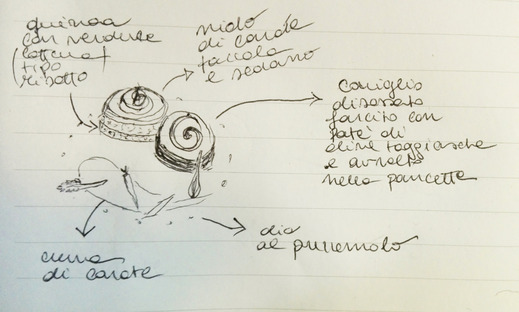 quinoa
con verdure
(cottura
tipo
risotto)
nido
di carote
taccola
e sedano
coniglio
disossato
farcito con
patè di
olive taggiasche
e avvolto
nella pancetta
crema
di carote
olio
al prezzemolo